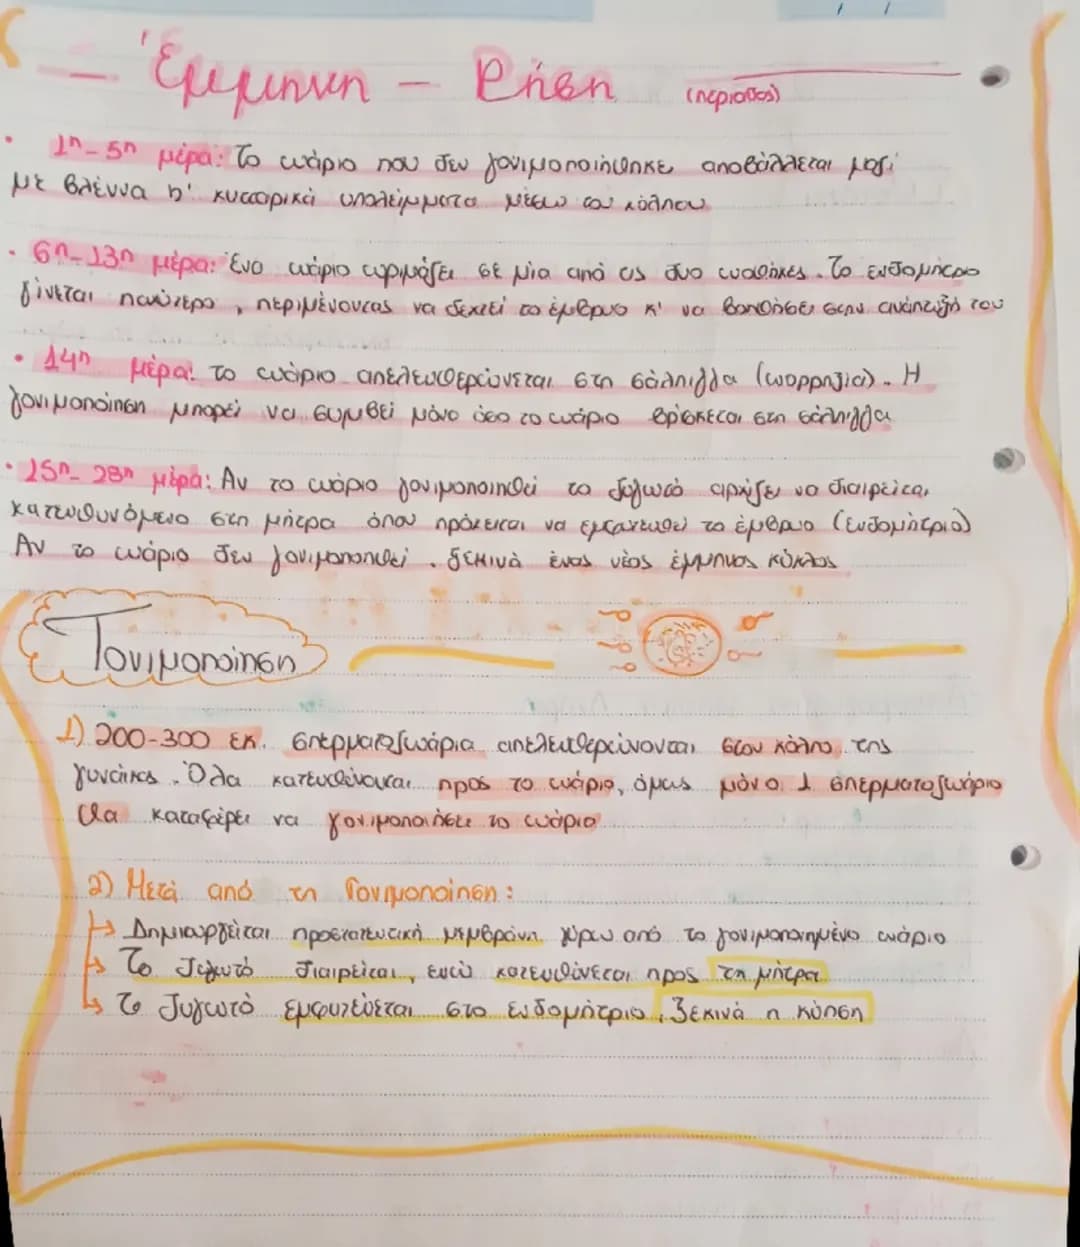 – Έμμηνη – Ρήση (περίοδος)
• 1η-5η μέρα: Το ωάριο που δεν γονιμοποιήθηκε αποβάλλεται μαζί
με βλέννα κ' κυτταρικά υπολείμματα μέσω του κόλπου
• 6η-13η μέρα: Ένα ωάριο ωριμάζει σε μία από τις δυο ωοθήκες. Το ενδομήτριο
γίνεται παχύτερο, περιμένοντας να δεχτεί το έμβρυο κ' να βοηθήσει στην ανάπτυξή του
• 14η μέρα: το ωάριο απελευθερώνεται στη σάλπιγγα (ωορρηξία). Η
γονιμοποίηση μπορεί να συμβεί μόνο όσο το ωάριο βρίσκεται στη σάλπιγγα
• 15η-28η μέρα: Αν το ωάριο γονιμοποιηθεί το ζυγωτό αρχίζει να διαιρείται,
κατευθυνόμενο στη μήτρα όπου πρόκειται να εμφυτευθεί το έμβρυο (ενδομήτριο)
Αν το ωάριο δεν γονιμοποιηθεί. ξεκινά ένας νέος έμμηνος κύκλος
Γονιμοποίηση
1) 200-300 εκ. σπερματοζωάρια απελευθερώνονται στον κόλπο της
γυναίκας. Όλα κατευθύνονται προς το ωάριο, όμως μόνο 1 σπερματοζωάριο
θα καταφέρει να γονιμοποιήσει το ωάριο
2) Μετά από τη Γονιμοποίηση:
↳ Δημιουργείται προστατευτική μεμβράνη γύρω από το γονιμοποιημένο ωάριο
↳ Το ζυγωτό διαιρείται, ενώ κατευθύνεται προς τη μήτρα
↳ Το ζυγωτό εμφυτεύεται στο ενδομήτριο, ξεκινά η κύηση